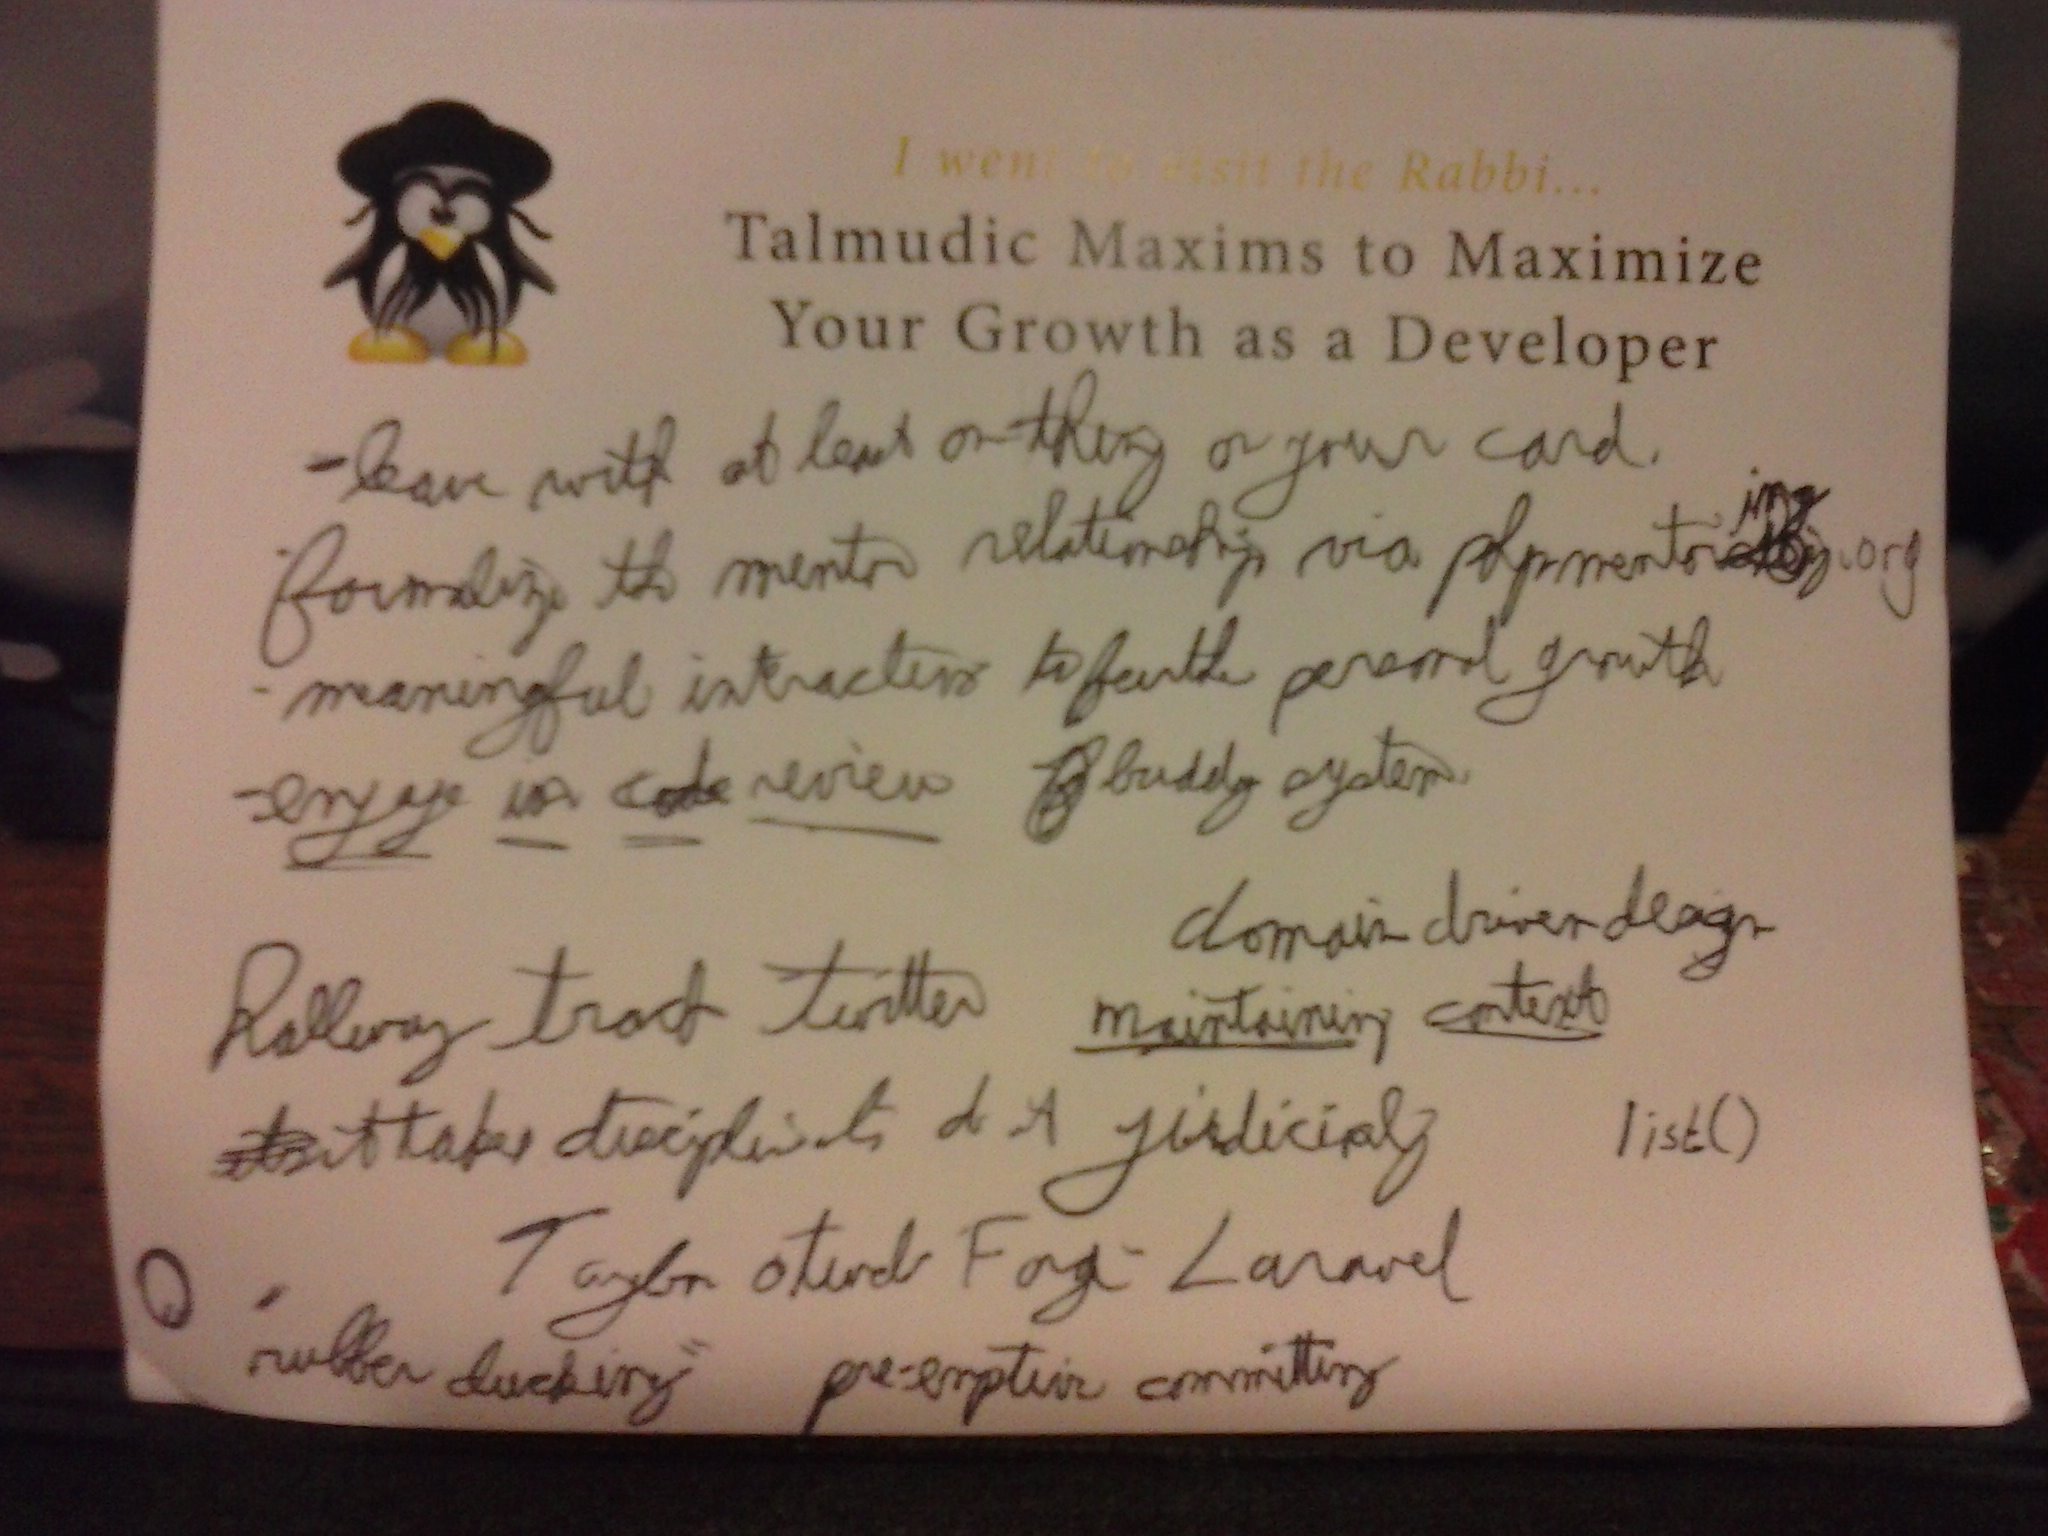 I went to visit the Rabbi...
Talmudic Maxims to Maximize
Your Growth as a Developer
- leave with at least on thing on your card.
formalize the mentor relationship via phpmentoring.org
- meaningful interactions to further personal growth
- engage in code review buddy system.
domain driven design
Hallway track twitter maintaining context
it takes discipline to do it judicially list()
Taylor otwel Forge Laravel
"rubber ducking" pre-emptive committing